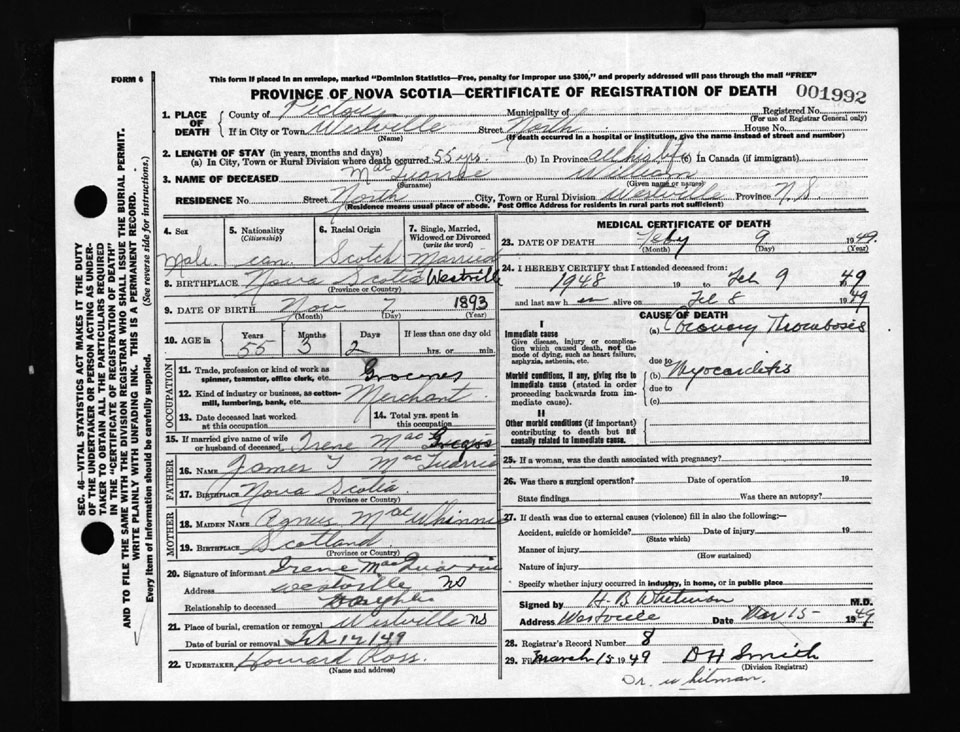 FORM 6
This form if placed in an envelope, marked "Dominion Statistics—Free, penalty for improper use $300," and properly addressed will pass through the mail "FREE"
PROVINCE OF NOVA SCOTIA—CERTIFICATE OF REGISTRATION OF DEATH 001992
1. PLACE OF DEATH County of Pictou Municipality of Registered No.
(For use of Registrar General only)
If in City or Town Westville Street North House No.
(Name) (If death occurred in a hospital or institution, give the name instead of street and number)
2. LENGTH OF STAY (in years, months and days)
(a) In City, Town or Rural Division where death occurred 55 yrs. (b) In Province all his life (c) In Canada (if immigrant)
3. NAME OF DECEASED William
(Surname) (Given name or names)
RESIDENCE No. Street North City, Town or Rural Division Westville Province N.S.
(Residence means usual place of abode. Post Office Address for residents in rural parts not sufficient)
4. Sex Male
5. Nationality (Citizenship) Can.
6. Racial Origin Scotch
7. Single, Married, Widowed or Divorced (write the word) Married
8. BIRTHPLACE Nova Scotia Westville
(Province or Country)
9. DATE OF BIRTH Nov 7 1893
(Month) (Day) (Year)
10. AGE in Years Months Days If less than one day old
55 3 2 hrs. or min.
OCCUPATION
11. Trade, profession or kind of work as spinner, teamster, office clerk, etc. Groceries
12. Kind of industry or business, as cotton-mill, lumbering, bank, etc. Merchant
13. Date deceased last worked at this occupation
14. Total yrs. spent in this occupation
15. If married give name of wife or husband of deceased Irene Mac
FATHER
16. NAME James
17. BIRTHPLACE Nova Scotia
(Province or Country)
MOTHER
18. MAIDEN NAME Agnes MacWhinnie
19. BIRTHPLACE Scotland
(Province or Country)
20. Signature of informant Irene
Address Westville NS
Relationship to deceased Daughter
21. Place of burial, cremation or removal Westville NS
Date of burial or removal Feb 12/49
22. UNDERTAKER Howard Ross.
(Name and address)
MEDICAL CERTIFICATE OF DEATH
23. DATE OF DEATH Feby 9 1949.
(Month) (Day) (Year)
24. I HEREBY CERTIFY that I attended deceased from:
1948 19 to Feb 9 1949
and last saw h alive on Feb 8 1949
CAUSE OF DEATH
I
Immediate cause
Give disease, injury or complication which caused death, not the mode of dying, such as heart failure, asphyxia, asthenia, etc.
(a) Coronary Thrombosis
due to
Morbid conditions, if any, giving rise to immediate cause (stated in order proceeding backwards from immediate cause).
(b) Myocarditis
due to
(c)
II
Other morbid conditions (if important) contributing to death but not causally related to immediate cause.
25. If a woman, was the death associated with pregnancy?
26. Was there a surgical operation? Date of operation 19
State findings Was there an autopsy?
27. If death was due to external causes (violence) fill in also the following:—
Accident, suicide or homicide? Date of injury 19
(State which)
Manner of injury
(How sustained)
Nature of injury
Specify whether injury occurred in industry, in home, or in public place
Signed by H B Whitman M.D.
Address Westville Date Mar 15 1949
28. Registrar's Record Number 8
29. Filed March 15 1949 D H Smith
(Division Registrar)
Dr. Whitman.
SEC. 46—VITAL STATISTICS ACT MAKES IT THE DUTY
OF THE UNDERTAKER OR PERSON ACTING AS UNDER-
TAKER TO OBTAIN ALL THE PARTICULARS REQUIRED
IN THE "CERTIFICATE OF REGISTRATION OF DEATH"
AND TO FILE THE SAME WITH THE DIVISION REGISTRAR WHO SHALL ISSUE THE BURIAL PERMIT.
WRITE PLAINLY WITH UNFADING INK. THIS IS A PERMANENT RECORD.
Every item of information should be carefully supplied. (See reverse side for instructions.)